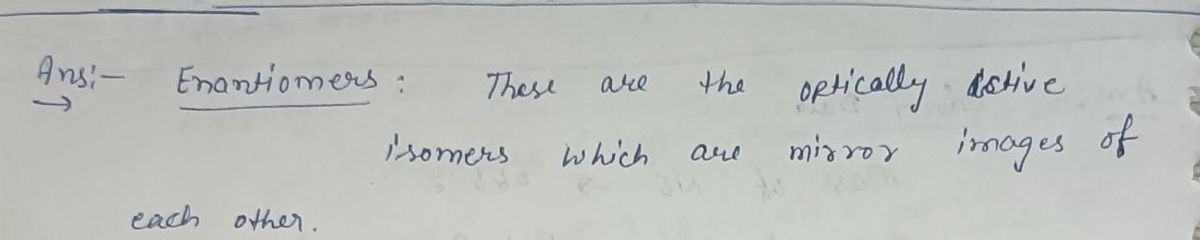 Ans:- Enantiomers : These are the optically active
isomers which are mirror images of
each other.